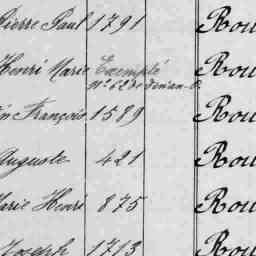 Pierre Paul 1791 Rou
Henri Marie Exempté Rou
Nº 62 de
in François 1589 Rou
Auguste 421 Rou
Marie Henri 875 Rou
Joseph 1713 Rou